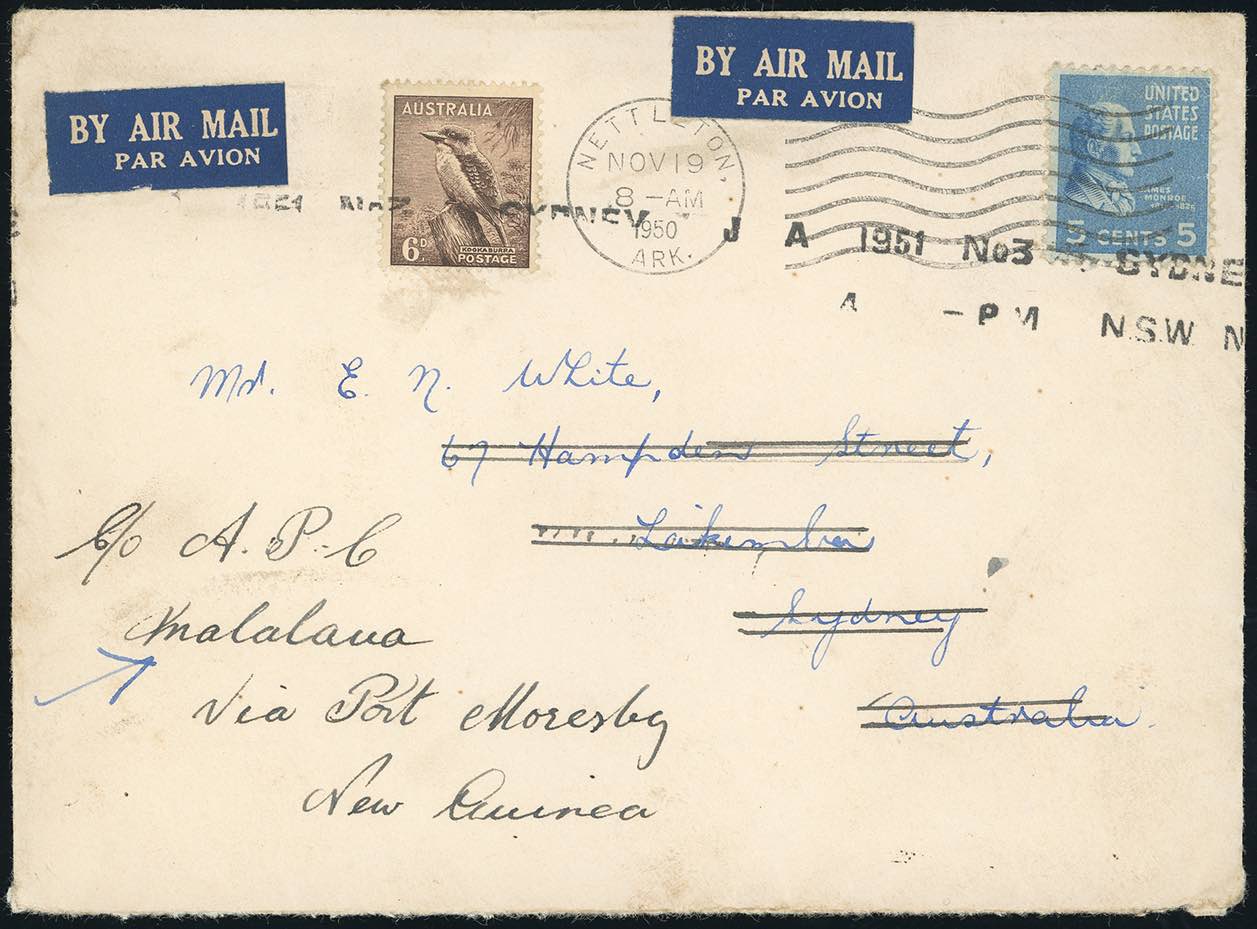 BY AIR MAIL
PAR AVION
BY AIR MAIL
PAR AVION
AUSTRALIA
6D
KOOKABURRA
POSTAGE
NETTLETON,
NOV 19
8-AM
1950
ARK.
UNITED
STATES
POSTAGE
JAMES
MONROE
5 CENTS 5
SYDNEY
J A 1951 No3 SYDNE
A -PM N.S.W. N
Mr. E. N. White,
67 Hampden Street,
Lakemba
Sydney
Australia.
C/o A.P.C
Malalaua
Via Port Moresby
New Guinea